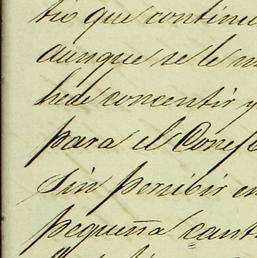 tio que continu
aunque se le m
hede concentir y
para el Conse
sin percibir en
pequeña cant